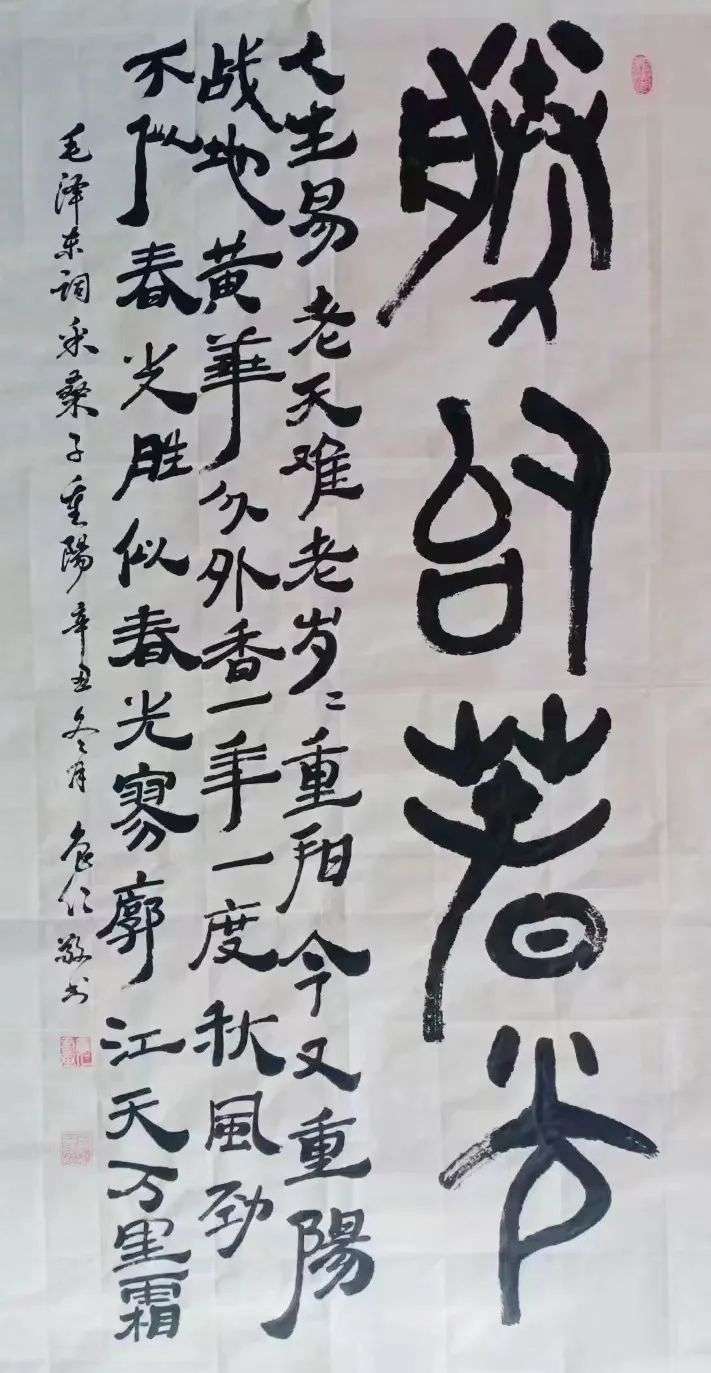 勝似春光
人生易老天难老岁〻重阳今又重陽
战地黄華分外香一年一度秋風劲
不似春光胜似春光寥廓江天万里霜
毛泽东词采桑子重陽辛丑冬月 敬书